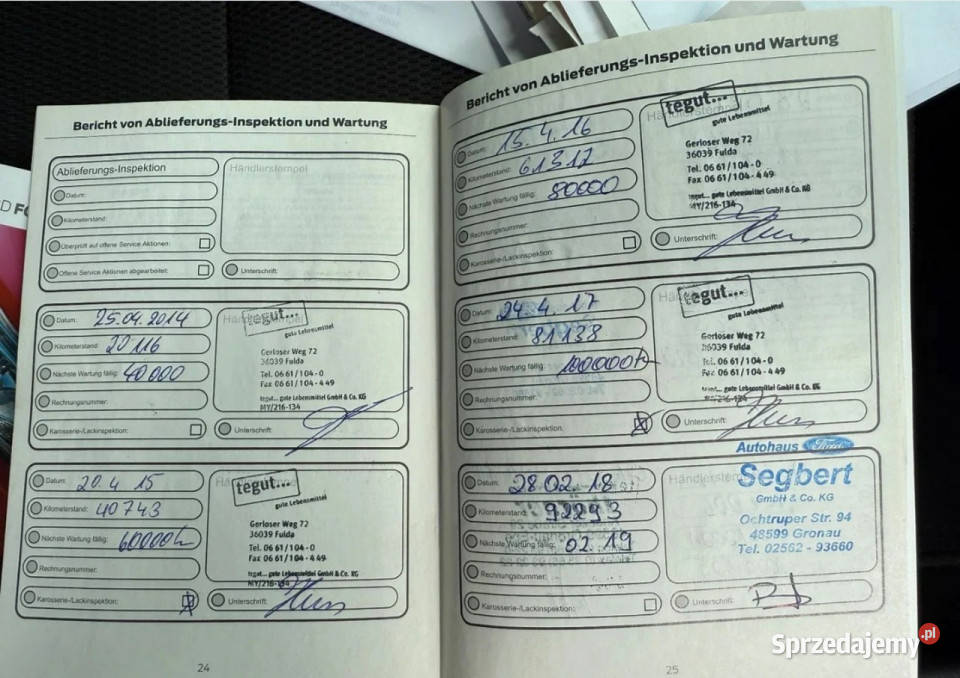 Bericht von Ablieferungs-Inspektion und Wartung
Ablieferungs-Inspektion
Händlerstempel
Datum:
Kilometerstand:
Überprüft auf offene Service Aktionen:
Offene Service Aktionen abgearbeitet:
Unterschrift:
Datum: 25.04.2014
Kilometerstand: 20 116
Nächste Wartung fällig: 40 000
Rechnungsnummer:
Karosserie-/Lackinspektion:
Händlerstempel
tegut...
gute Lebensmittel
Gerloser Weg 72
36039 Fulda
Tel. 06 61 / 104 - 0
Fax 06 61 / 104 - 4 49
tegut... gute Lebensmittel GmbH & Co. KG
MY/216-134
Unterschrift:
Datum: 20.4 15
Kilometerstand: 40743
Nächste Wartung fällig: 60000
Rechnungsnummer:
Karosserie-/Lackinspektion:
tegut...
gute Lebensmittel
Gerloser Weg 72
36039 Fulda
Tel. 06 61 / 104 - 0
Fax 06 61 / 104 - 4 49
tegut... gute Lebensmittel GmbH & Co. KG
MY/216-134
Unterschrift:
24
Bericht von Ablieferungs-Inspektion und Wartung
Datum: 15.4.16
Kilometerstand: 61317
Nächste Wartung fällig: 80000
Rechnungsnummer:
Karosserie-/Lackinspektion:
Händlerstempel
tegut...
gute Lebensmittel
Gerloser Weg 72
36039 Fulda
Tel. 06 61 / 104 - 0
Fax 06 61 / 104 - 4 49
tegut... gute Lebensmittel GmbH & Co. KG
MY/216-134
Unterschrift:
Datum: 24.4.17
Kilometerstand: 81138
Nächste Wartung fällig: 100000
Rechnungsnummer:
Karosserie-/Lackinspektion:
tegut...
gute Lebensmittel
Gerloser Weg 72
36039 Fulda
Tel. 06 61 / 104 - 0
Fax 06 61 / 104 - 4 49
tegut... gute Lebensmittel GmbH & Co. KG
MY/216-134
Unterschrift:
Datum: 28.02.18
Kilometerstand: 92293
Nächste Wartung fällig: 02.19
Rechnungsnummer:
Karosserie-/Lackinspektion:
Händlerstempel
Autohaus Ford
Segbert
GmbH & Co. KG
Ochtruper Str. 94
48599 Gronau
Tel. 02562 - 93660
Unterschrift:
25
Sprzedajemy.pl